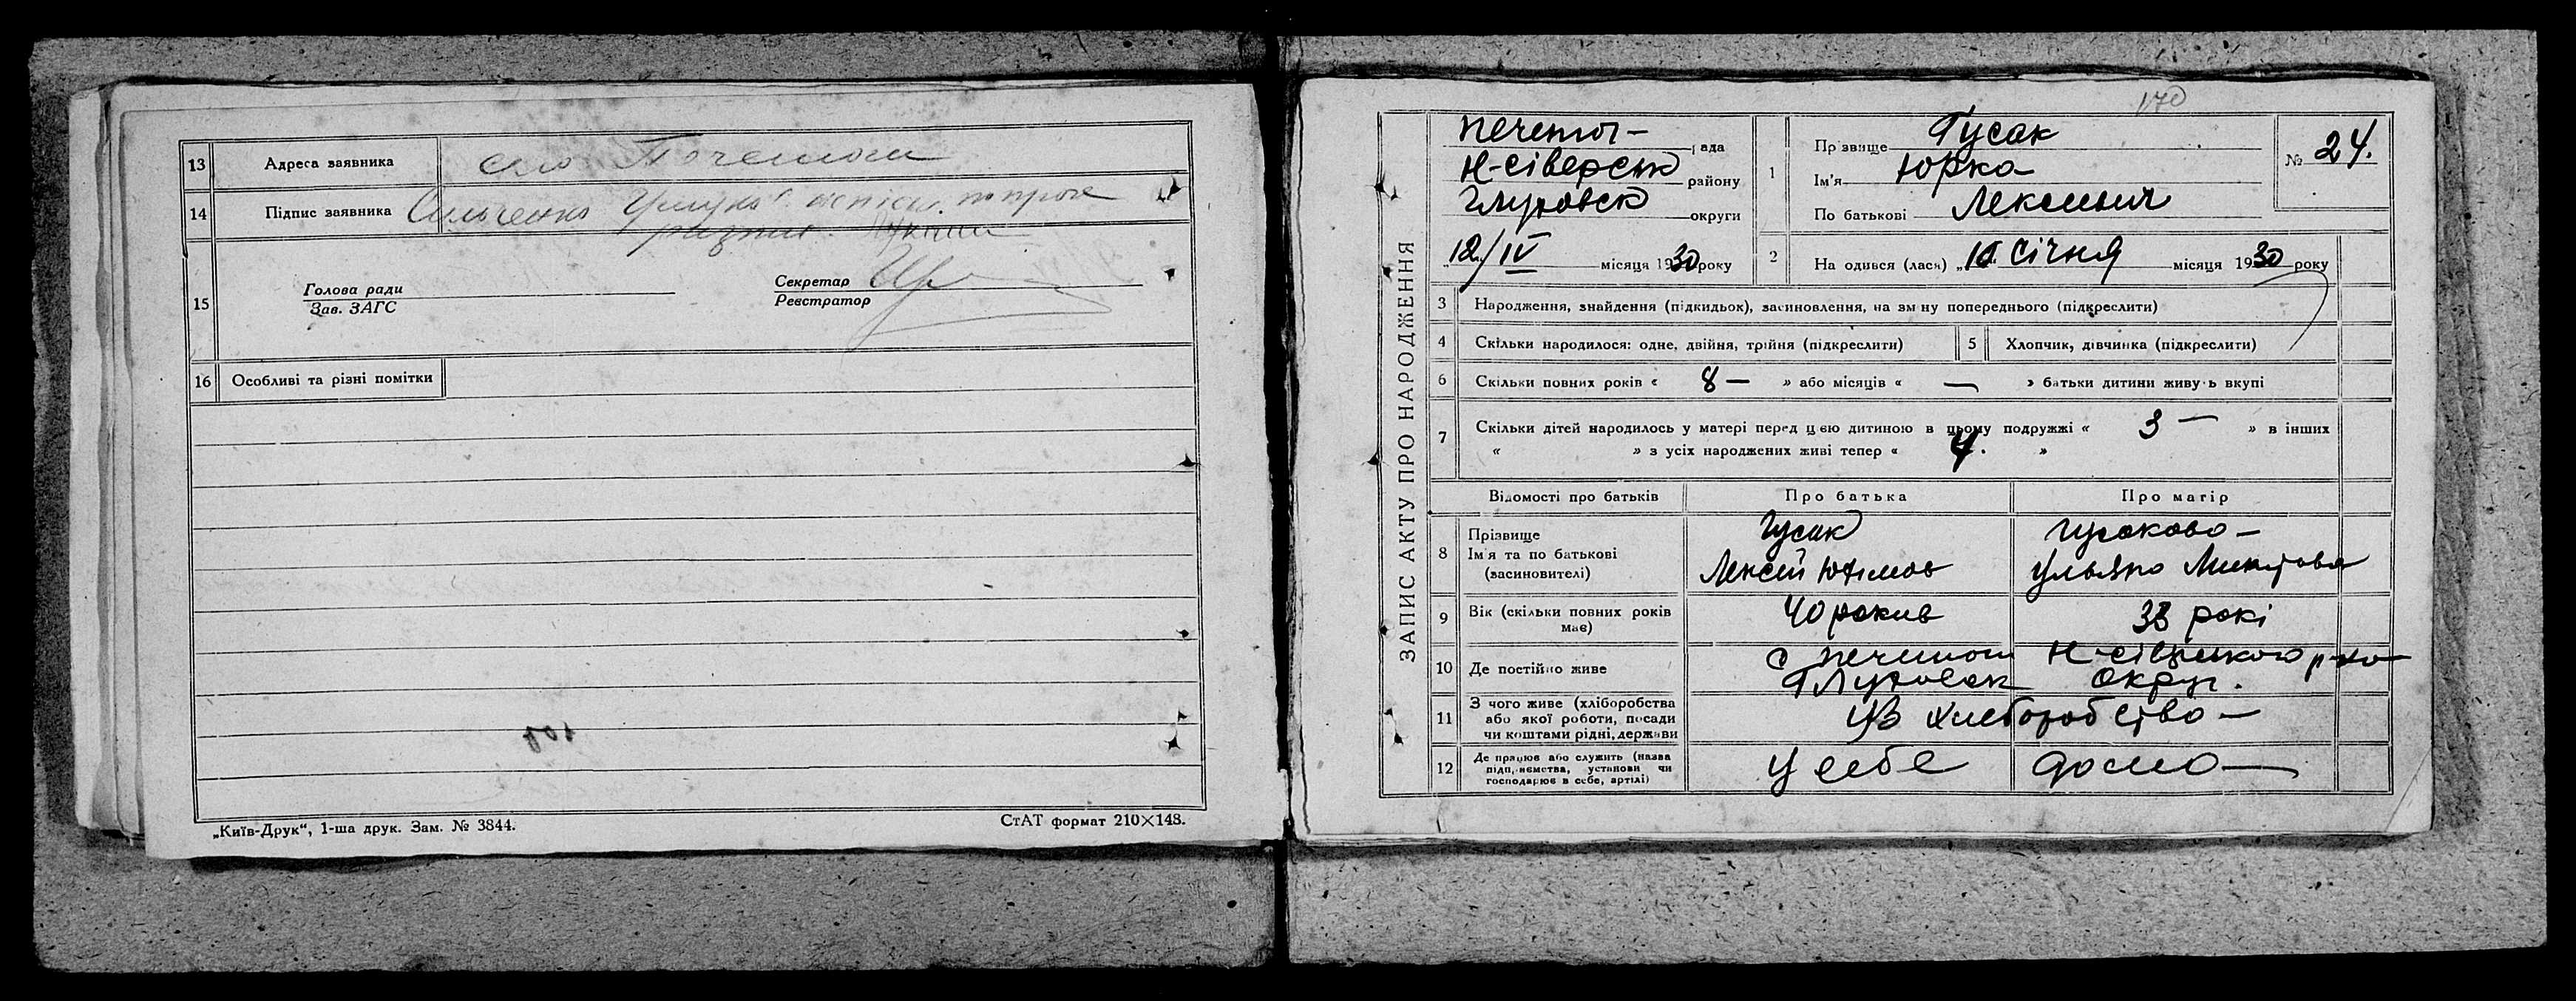 13 Адреса заявника село Печенюги
14 Підпис заявника
15 Голова ради
Зав. ЗАГС
Секретар
Реєстратор
16 Особливі та різні помітки
„Київ-Друк“, 1-ша друк. Зам. № 3844.
СтАТ формат 210×148.
170
ЗАПИС АКТУ ПРО НАРОДЖЕННЯ
Печенюг- рада
Н-сіверськ району
Глуховск округи
12/IV місяця 1930 року
1 Прізвище Гусак
Ім'я Юрка
По батькові Лексеевич
№ 24.
2 На одився (лася) січня місяця 1930 року
3 Народження, знайдення (підкидьок), засиновлення, на зміну попереднього (підкреслити)
4 Скільки народилося: одне, двійня, трійня (підкреслити)
5 Хлопчик, дівчинка (підкреслити)
6 Скільки повних років « 8 — » або місяців « — » батьки дитини живуть вкупі
7 Скільки дітей народилось у матері перед цією дитиною в цьому подружжі « 3 — » в інших
« » з усіх народжених живі тепер « 4. »
Відомості про батьків Про батька Про матір
8 Прізвище Гусак Гусакова —
Ім'я та по батькові
(засиновителі) Лексей Юхимов Ульяна Микитова
9 Вік (скільки повних років має) 40 рокив 38 рокі
10 Де постійно живе с Печенюги Н-сіверського р-на
Глуховск Округ.
11 З чого живе (хліборобства
або якої роботи, посади
чи коштами рідні, держави хлеборобство —
12 Де працює або служить (назва
підприємства, установи чи
господарює в себе, артілі) У себе дома —